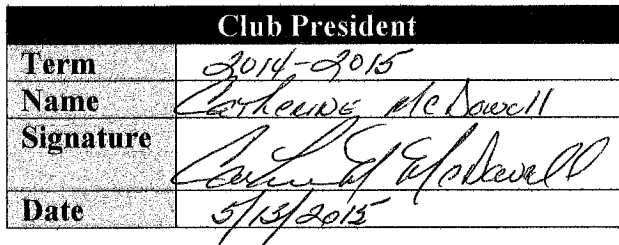 Club President
Term 2014-2015
Name Catherine McDowell
Signature McDowell
Date 5/13/2015